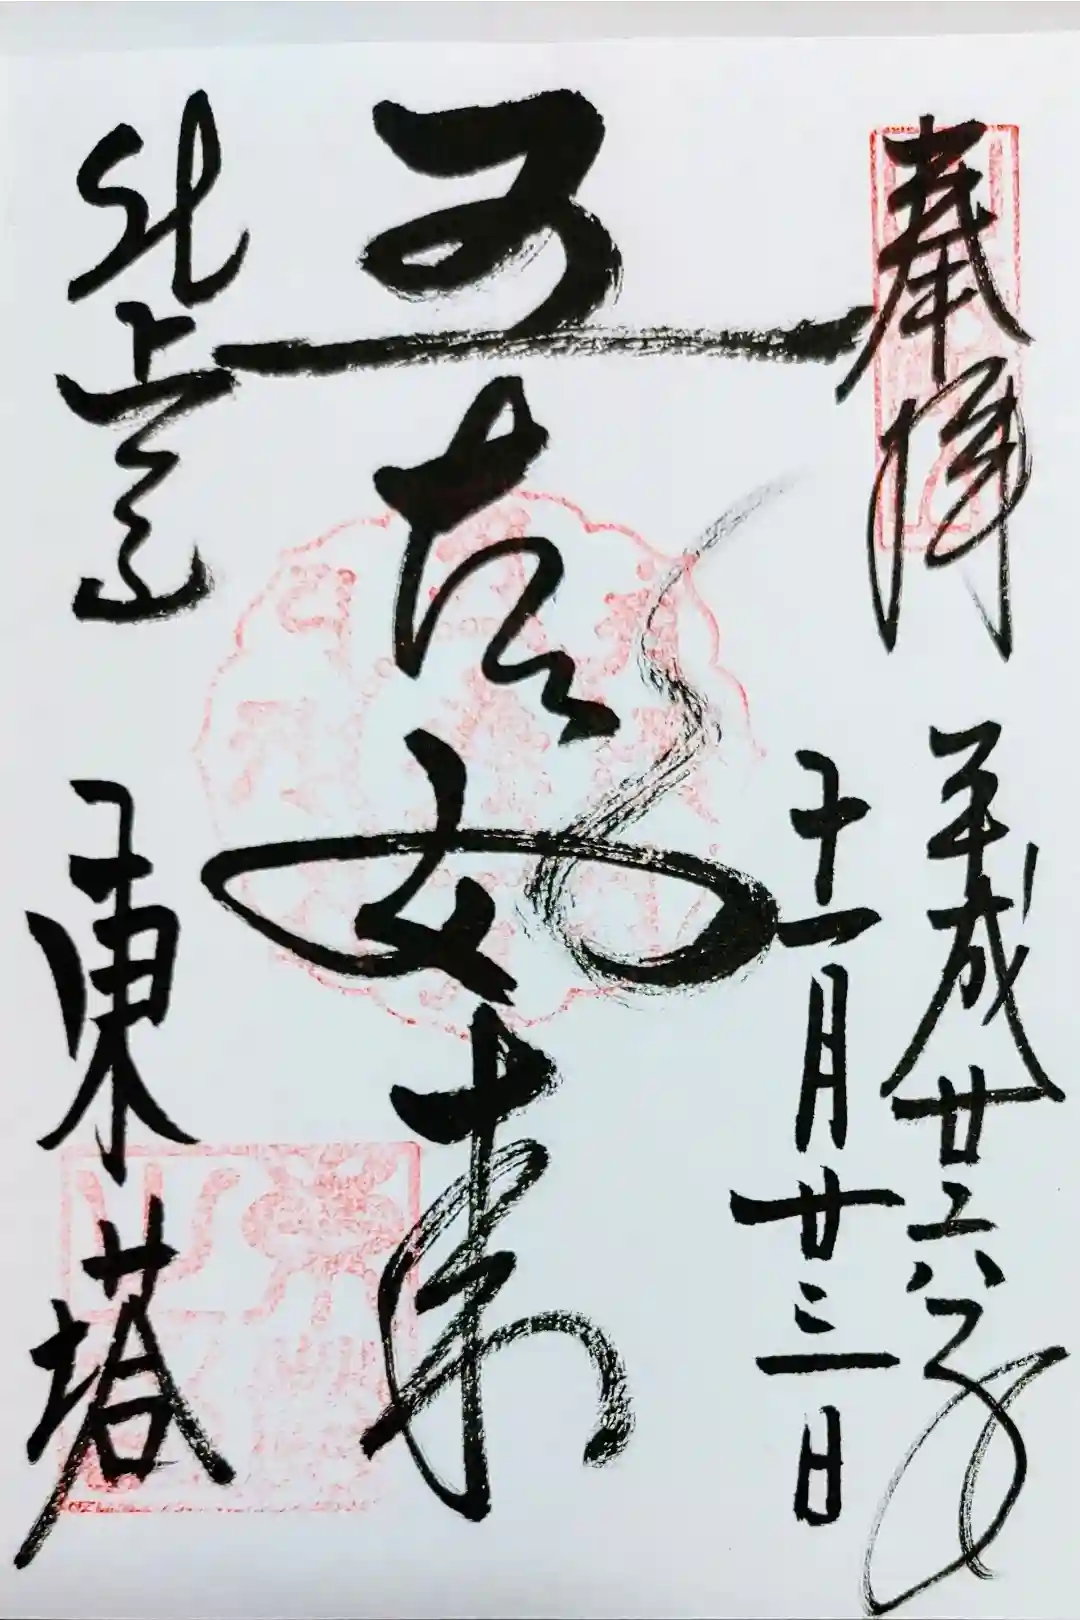 奉拝
平成廿六年
十一月廿三日
五智如来
比叡山
東塔